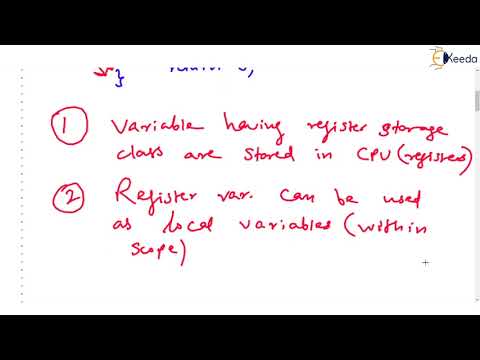 Keeda
}
① Variable having register storage
class are stored in CPU (registers)
② Register var. can be used
as local variables (within
scope)